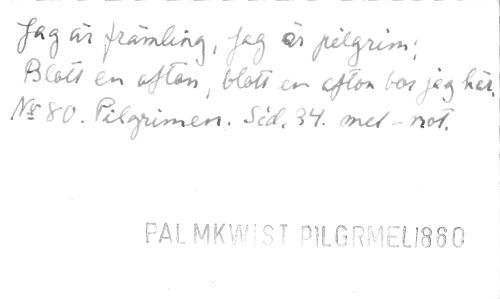 Jag är främling, jag är pilgrim;
Blott en afton, blott en afton bor jag här.
No 80. Pilgrimen. Sid. 34. mel-not.
PALMKWIST PILGRMEL1860